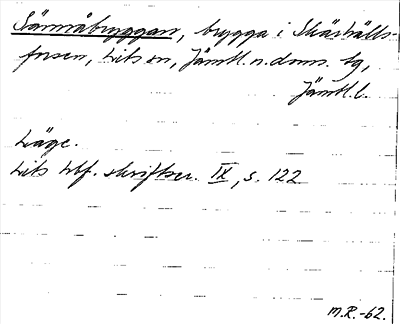 Särmåbryggan, brygga i Skärhålls-
forsen, Lits sn, Jämtl. n. doms. tg,
Jämtl. l.
Läge.
Lits hbf. skriftser. IX, s. 122
M.R.-62.